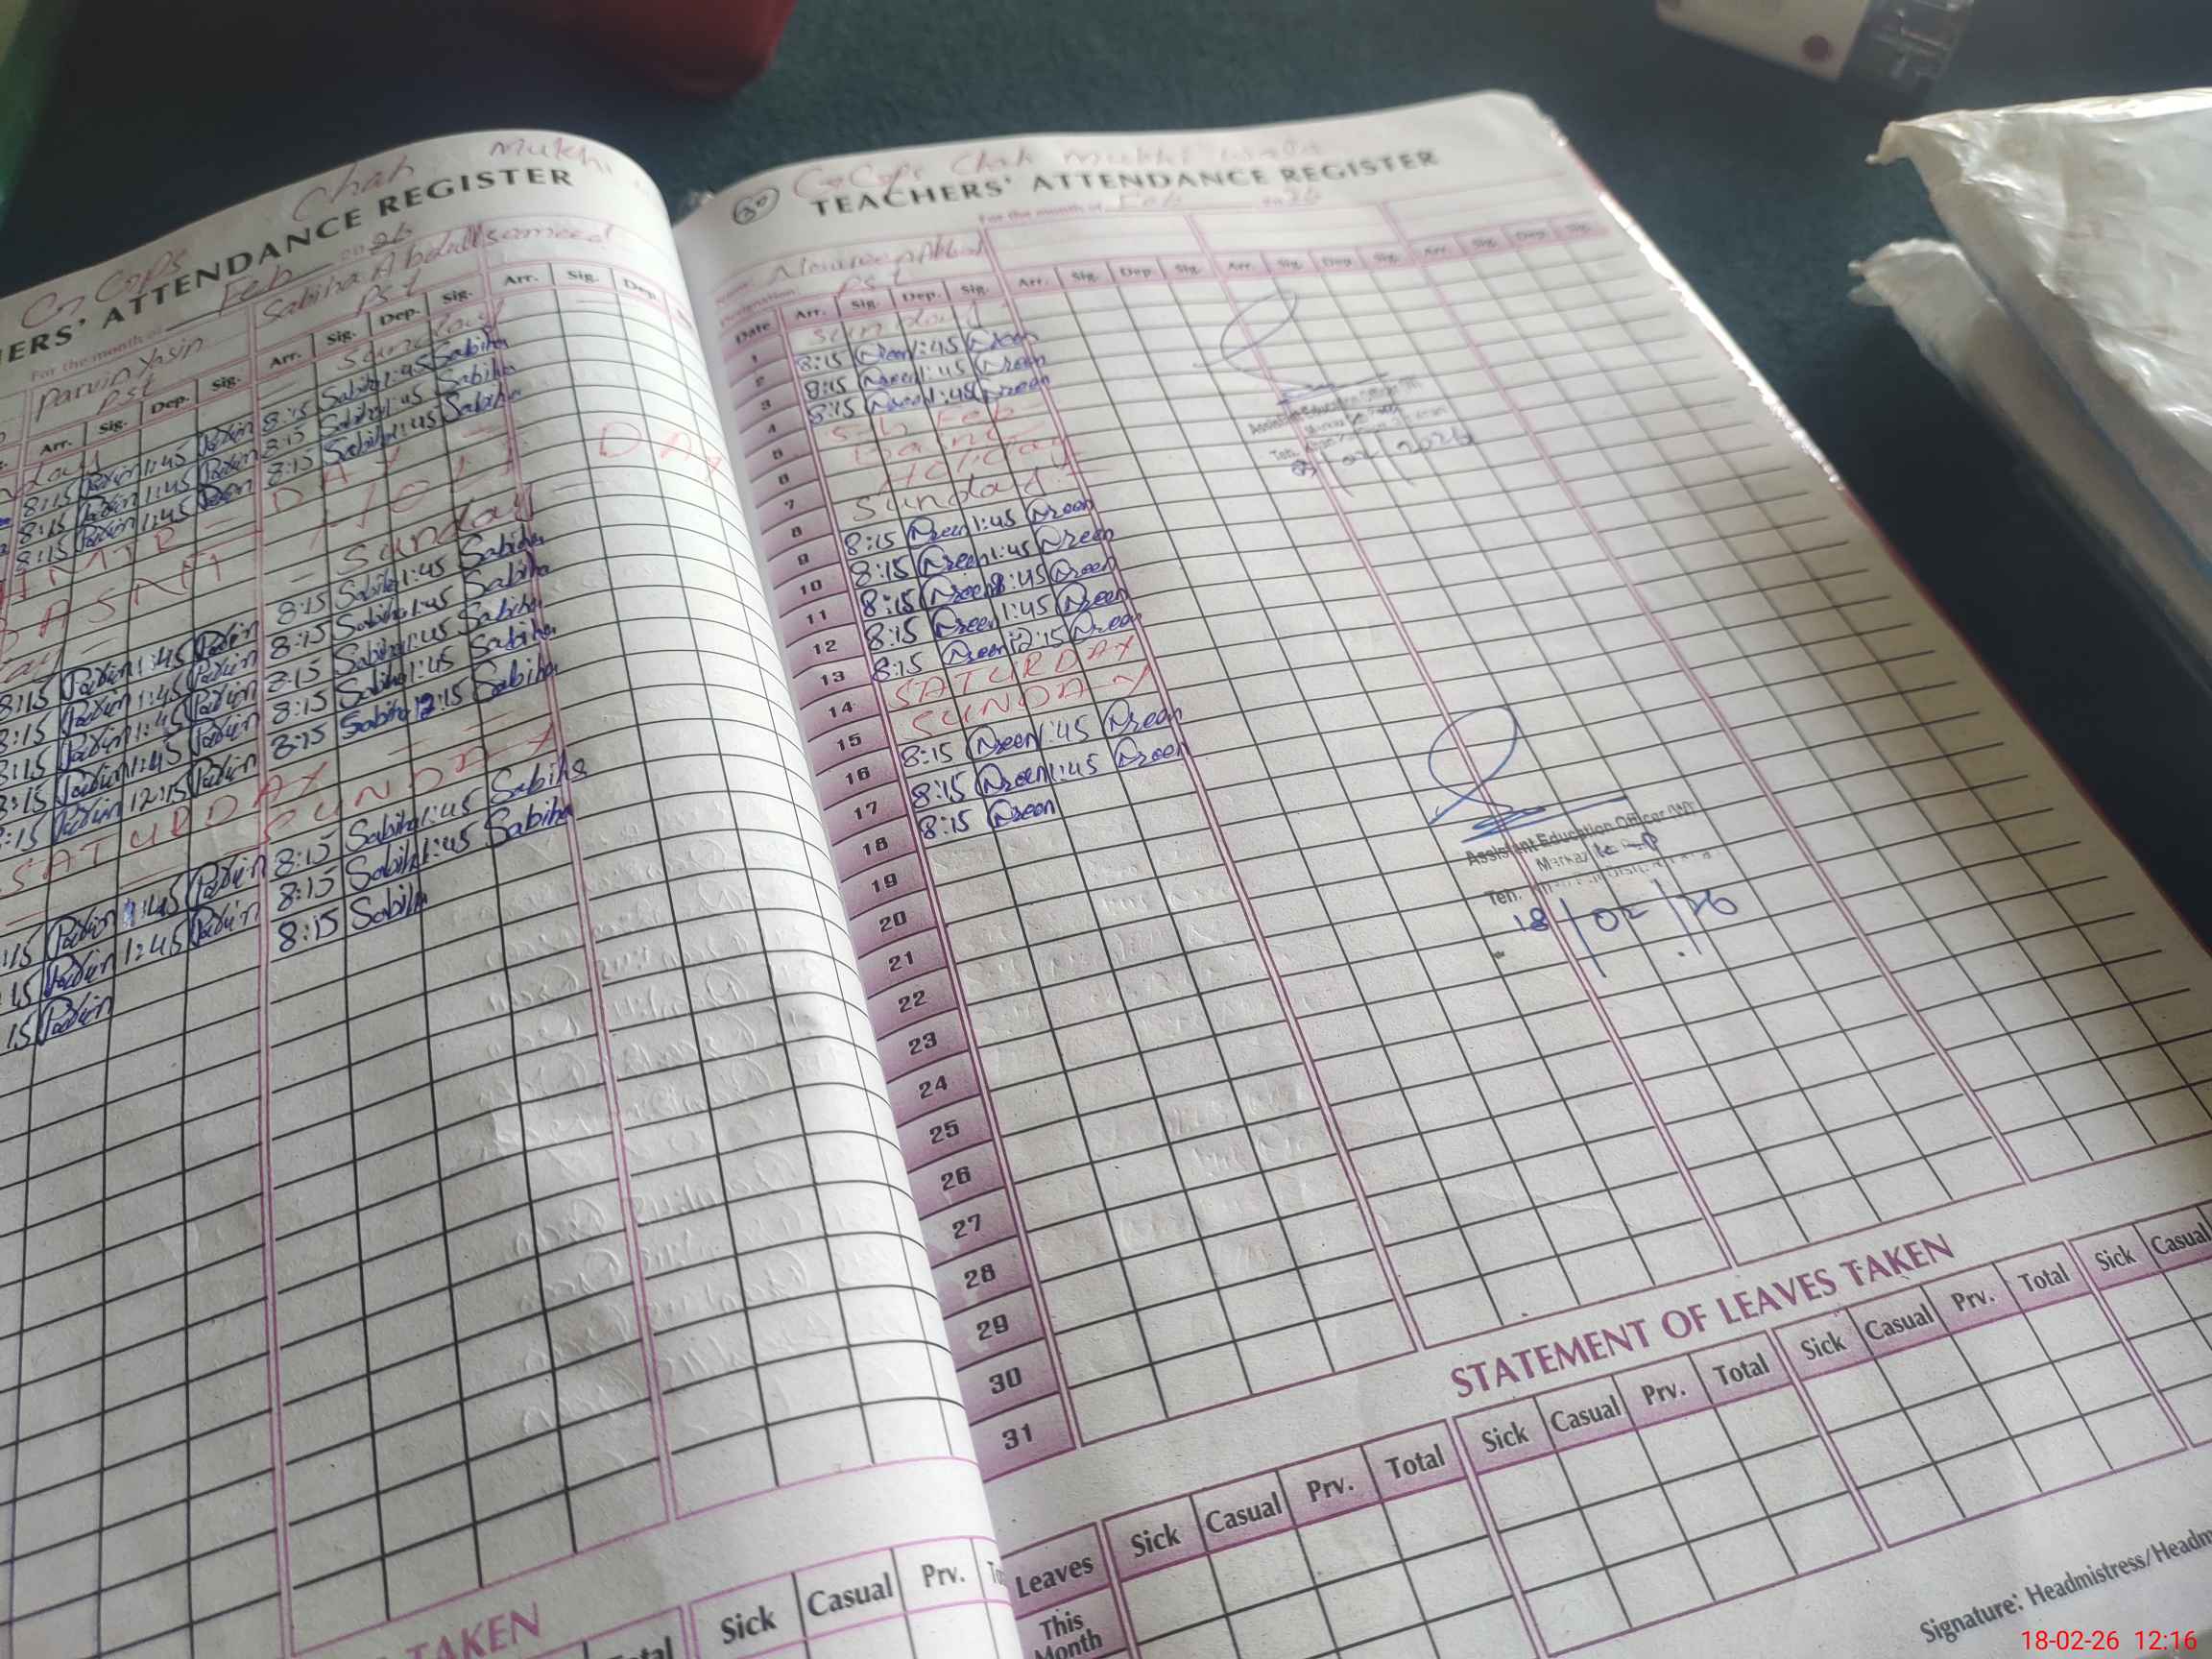 Chah Mukhi
ERS' ATTENDANCE REGISTER
For the month of Feb 2026
Parvin Yasin
Sabiha Abdulsameed
Pst
Pst
Arr. Sig. Dep. Sig. Arr. Sig. Dep. Sig. Arr. Sig. Dep.
Sunday
8:15 Parvin 1:45 Parvin 8:15 Sabiha 1:45 Sabiha
8:15 Parvin 1:45 Parvin 8:15 Sabiha 1:45 Sabiha
8:15 Parvin 1:45 Parvin 8:15 Sabiha 1:45 Sabiha
DAY
Sunday
8:15 Parvin 1:45 Parvin 8:15 Sabiha 1:45 Sabiha
8:15 Parvin 1:45 Parvin 8:15 Sabiha 1:45 Sabiha
8:15 Parvin 1:45 Parvin 8:15 Sabiha 1:45 Sabiha
8:15 Parvin 1:45 Parvin 8:15 Sabiha 1:45 Sabiha
:15 Parvin 12:15 Parvin 8:15 Sabiha 12:15 Sabiha
SATURDAY
SUNDAY
:15 Parvin 1:45 Parvin 8:15 Sabiha 1:45 Sabiha
15 Parvin 1:45 Parvin 8:15 Sabiha 1:45 Sabiha
15 Parvin 8:15 Sabiha
TAKEN
Sick Casual Prv.
30
Chak Mukhi wala
TEACHERS' ATTENDANCE REGISTER
For the month of Feb 2026
Name
Designation Pst
Date Arr. Sig. Dep. Sig. Arr. Sig. Dep. Sig. Arr. Sig. Dep. Sig. Arr. Sig. Dep. Sig.
1 Sunday
2 8:15 Nreen 1:45 Nreen
3 8:15 Nreen 1:45 Nreen
4 8:15 Nreen 1:45 Nreen
5 5th Feb
6 Basnt
7 Holiday
8 Sunday
9 8:15 Nreen 1:45 Nreen
10 8:15 Nreen 1:45 Nreen
11 8:15 Nreen :45 Nreen
12 8:15 Nreen 1:45 Nreen
13 8:15 Nreen 12:15 Nreen
14 SATURDAY
15 SUNDAY
16 8:15 Nreen 1:45 Nreen
17 8:15 Nreen 1:45 Nreen
18 8:15 Nreen
19
20
21
22
23
24
25
26
27
28
29
30
31
Assistant Education Officer
02/2026
Assistant Education Officer (W)
Markaz
Teh.
18/02/26
STATEMENT OF LEAVES TAKEN
Leaves Sick Casual Prv. Total Sick Casual Prv. Total Sick Casual Prv. Total Sick Casual
This Month
Signature: Headmistress/Headm
18-02-26 12:16